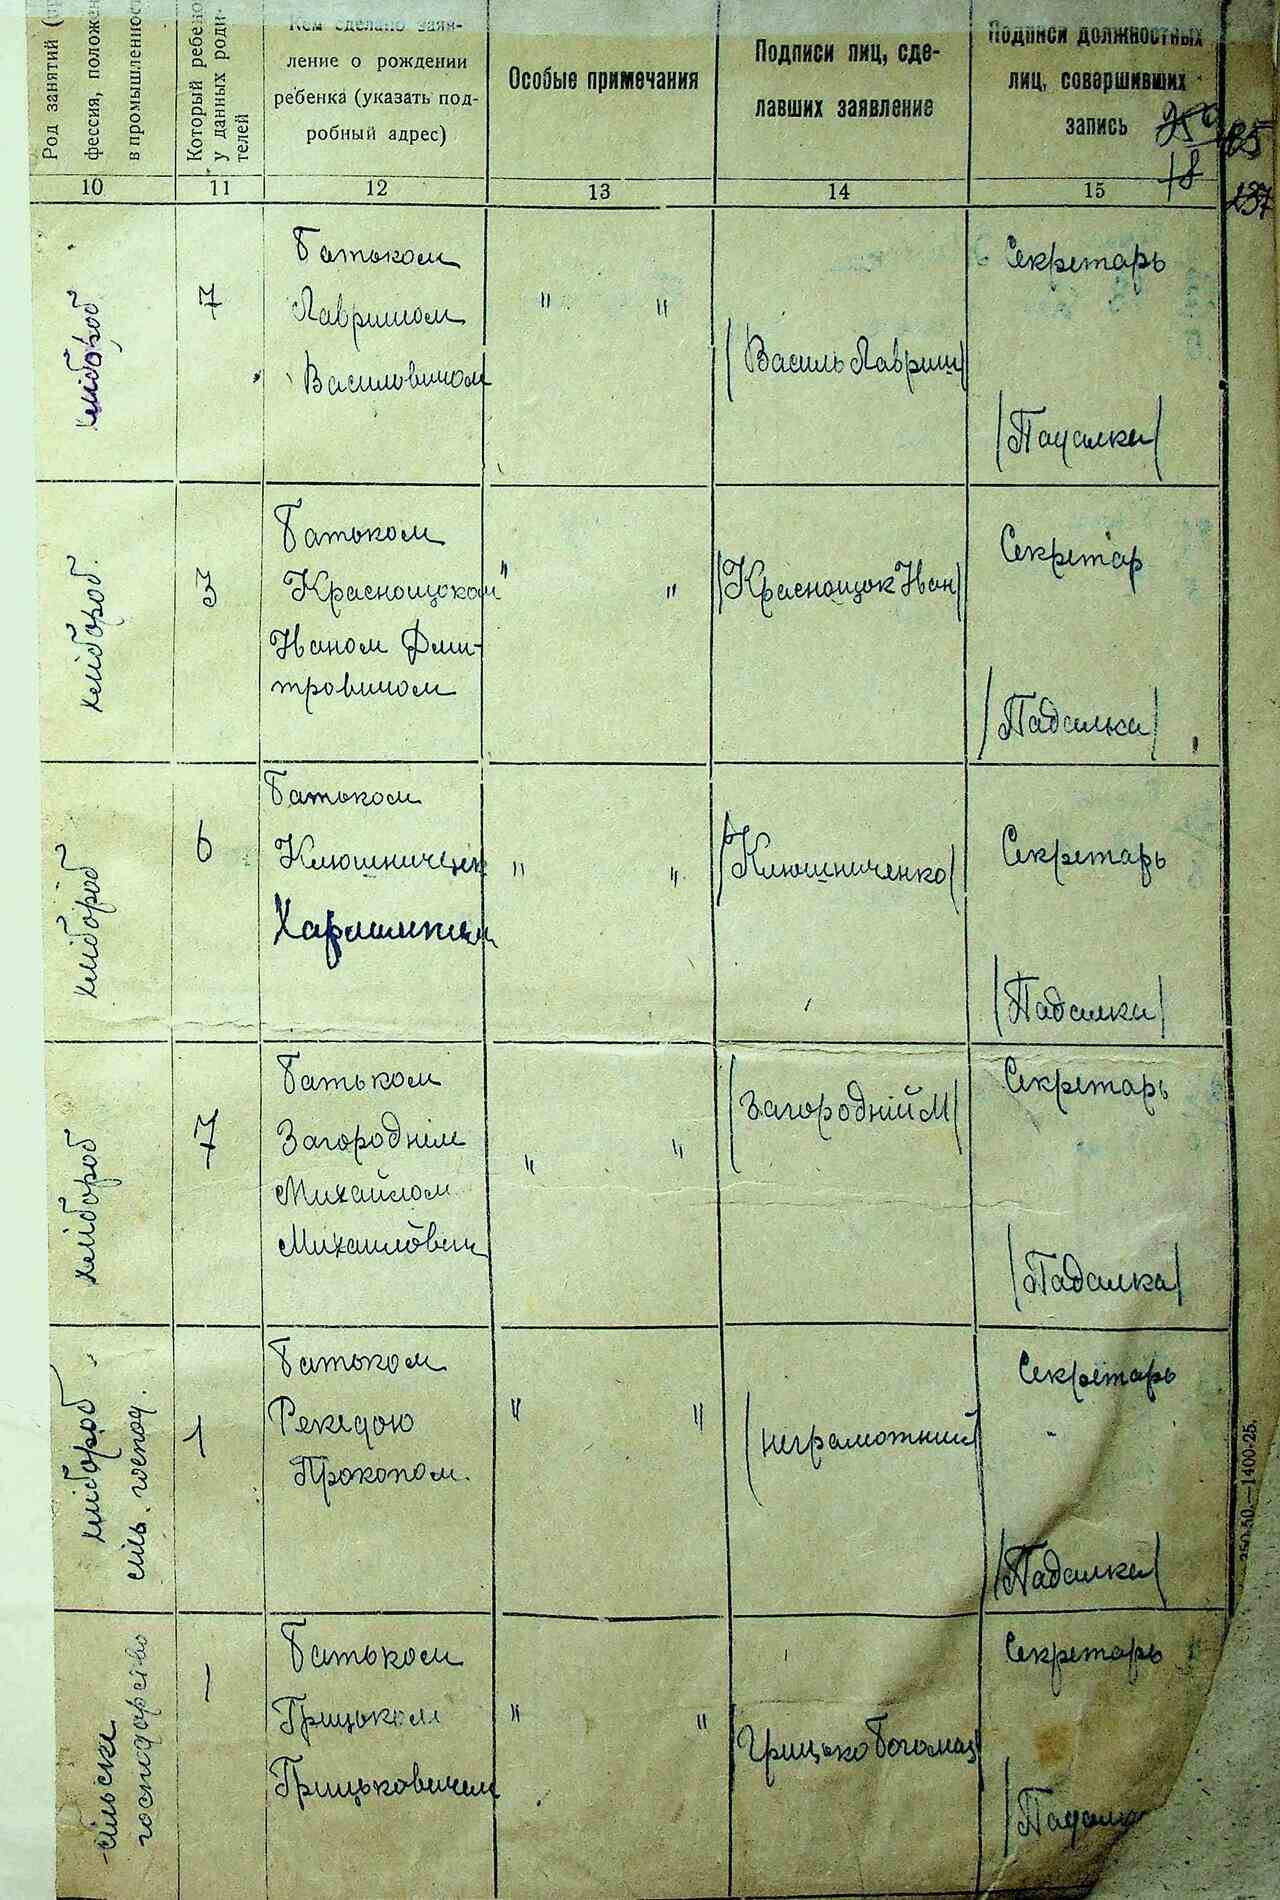 Род занятий
фессия, положен
в промышленнос
Который ребено
у данных роди-
телей
Кем сделано заяв-
ление о рождении
ребенка (указать под-
робный адрес)
Особые примечания
Подписи лиц, сде-
лавших заявление
Подписи должностных
лиц, совершивших
запись
18
137
10
11
12
13
14
15
хлібороб
7
Батьком
Лавришом
Васильовичом
" "
(Василь Лавриш)
Секретарь
(Падалка)
хлібороб.
3
Батьком
Краснощоком
Іваном Дми-
тровичом
" "
(Краснощок Іван)
Секретар
(Падалка)
хлібороб
6
Батьком
Ключниченк
" "
(Ключниченко)
Секретарь
(Падалка)
хлібороб
7
Батьком
Загороднім
Михайлом
Михайлович
" "
(Загородній М)
Секретарь
(Падалка)
хлібороб
сіль. господ.
1
Батьком
Рекедою
Прокопом.
" "
(неграмотний)
Секретарь
(Падалка)
сільське
господарство
1
Батьком
Грицьком
Грицьковичем
" "
(Грицько Богомаз)
Секретарь
(Падалк
250-50.—1400-25.